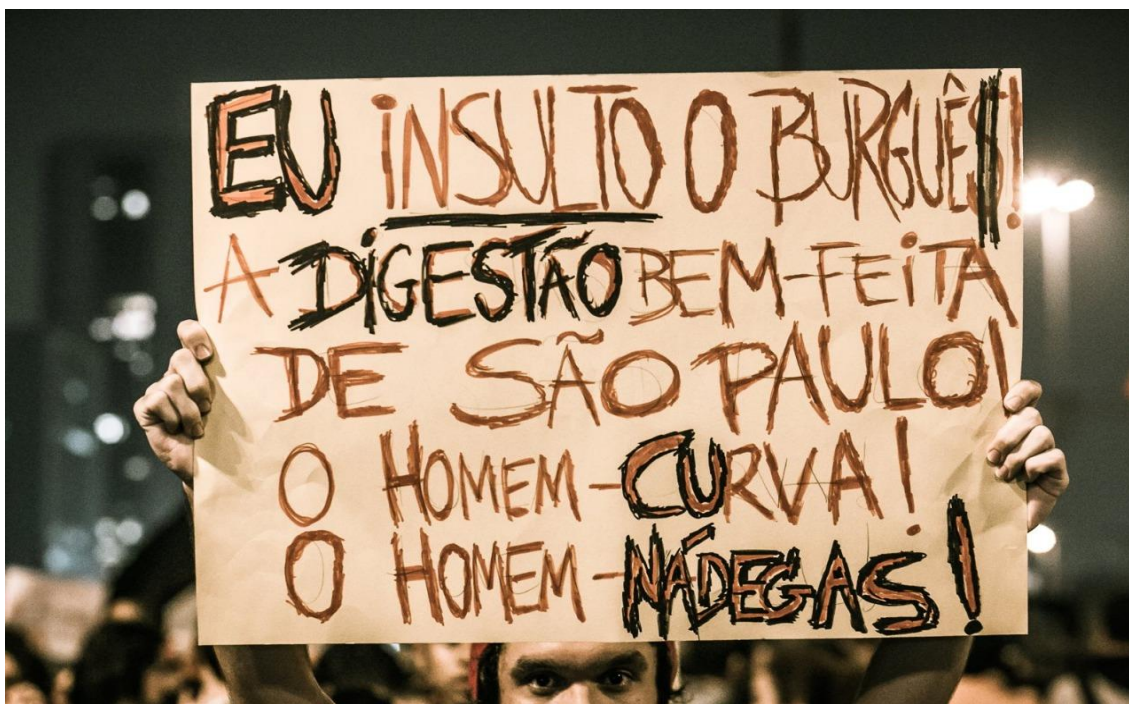 EU INSULTO O BURGUÊS!
A DIGESTÃO BEM-FEITA
DE SÃO PAULO!
O HOMEM-CURVA!
O HOMEM-NÁDEGAS!